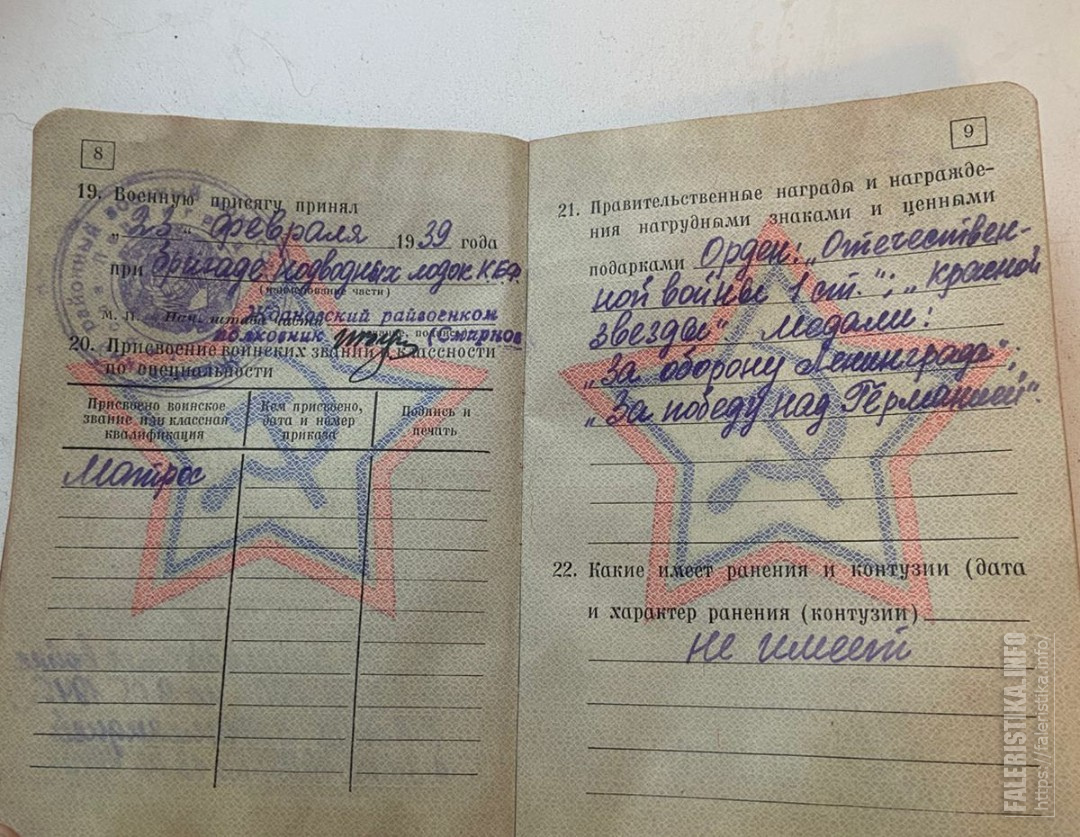 8
19. Военную присягу принял
„23„ февраля 1939 года
при бригаде подводных лодок КБФ
(наименование части)
М. П. Нач. штаба части
Ждановский райвоенком
полковник (Смирнов
20. Присвоение воинских званий и классности
по специальности
Присвоено воинское
звание или классная
квалификация
Кем присвоено,
дата и номер
приказа
Подпись и
печать
Матрос
районный военный
9
21. Правительственные награды и награжде-
ния нагрудными знаками и ценными
подарками Орден: „Отечествен-
ной войны 1 ст."; „Красной
звезды" Медали:
„За оборону Ленинграда";
„За победу над Германией".
22. Какие имеет ранения и контузии (дата
и характер ранения (контузии)
не имеет
FALERISTIKA.INFO
https://faleristika.info